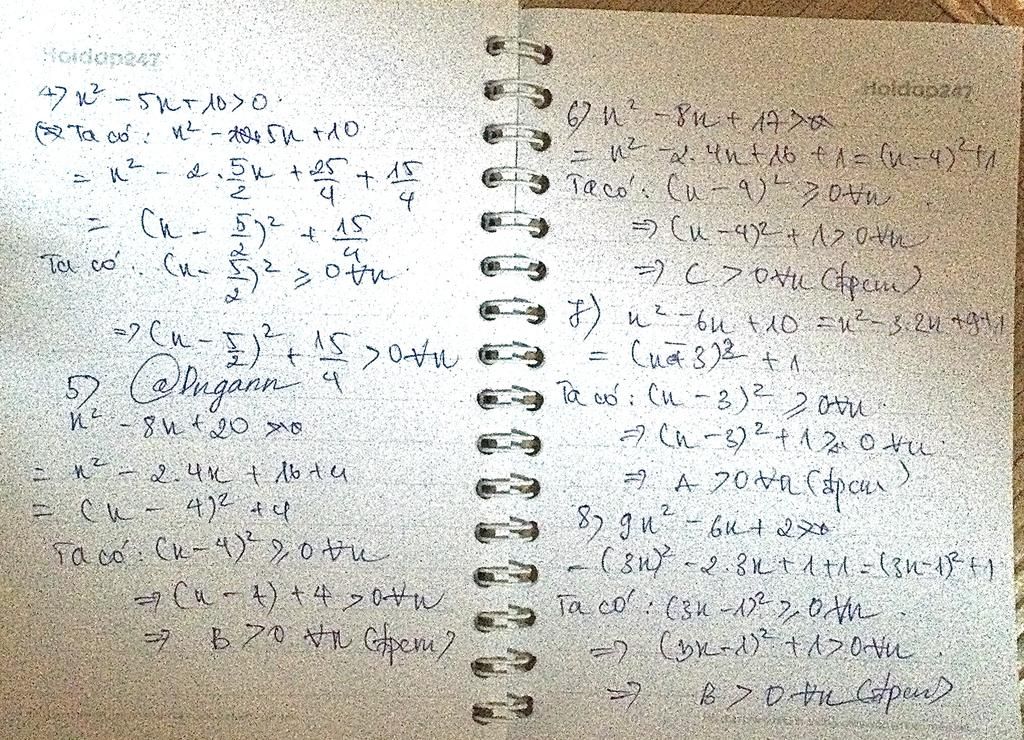 Hoidap247
4) x² - 5x + 10 > 0.
(=> Ta có: x² - 5x + 10
= x² - 2 . 5/2 x + 25/4 + 15/4
= (x - 5/2)² + 15/4
Ta có: (x - 5/2)² ⩾ 0 ∀x.
=> (x - 5/2)² + 15/4 > 0 ∀x
5) @Dugann
x² - 8x + 20 > 0
= x² - 2.4x + 16 + 4
= (x - 4)² + 4
Ta có: (x - 4)² ⩾ 0 ∀x
=> (x - 4) + 4 > 0 ∀x
=> B > 0 ∀x (đpcm)
Hoidap247
6) x² - 8x + 17 > 0
= x² - 2.4x + 16 + 1 = (x - 4)² + 1
Ta có: (x - 4)² ⩾ 0 ∀x.
=> (x - 4)² + 1 > 0 ∀x
=> C > 0 ∀x (đpcm)
7) x² - 6x + 10 = x² - 3.2x + 9 + 1
= (x - 3)² + 1
Ta có: (x - 3)² ⩾ 0 ∀x.
=> (x - 3)² + 1 ⩾ 0 ∀x
=> A > 0 ∀x (đpcm)
8) 9x² - 6x + 2 > 0
= (3x)² - 2.3x + 1 + 1 = (3x - 1)² + 1
Ta có: (3x - 1)² ⩾ 0 ∀x.
=> (3x - 1)² + 1 > 0 ∀x.
=> B > 0 ∀x (đpcm)